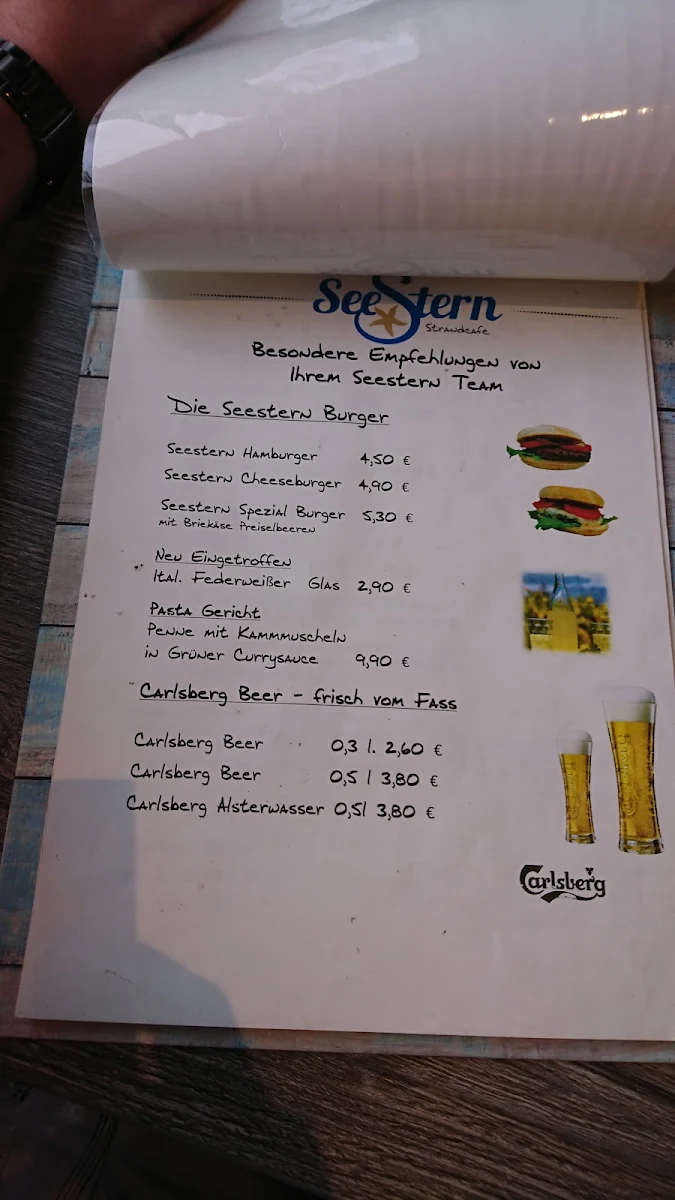 SeeStern
Strandcafe
Besondere Empfehlungen von
Ihrem Seestern Team
Die Seestern Burger
Seestern Hamburger 4,50 €
Seestern Cheeseburger 4,90 €
Seestern Spezial Burger 5,30 €
mit Briekäse Preiselbeeren
Neu Eingetroffen
Ital. Federweißer Glas 2,90 €
Pasta Gericht
Penne mit Kammmuscheln
in Grüner Currysauce 9,90 €
Carlsberg Beer - frisch vom Fass
Carlsberg Beer 0,3 l. 2,60 €
Carlsberg Beer 0,5 l 3,80 €
Carlsberg Alsterwasser 0,5l 3,80 €
Carlsberg